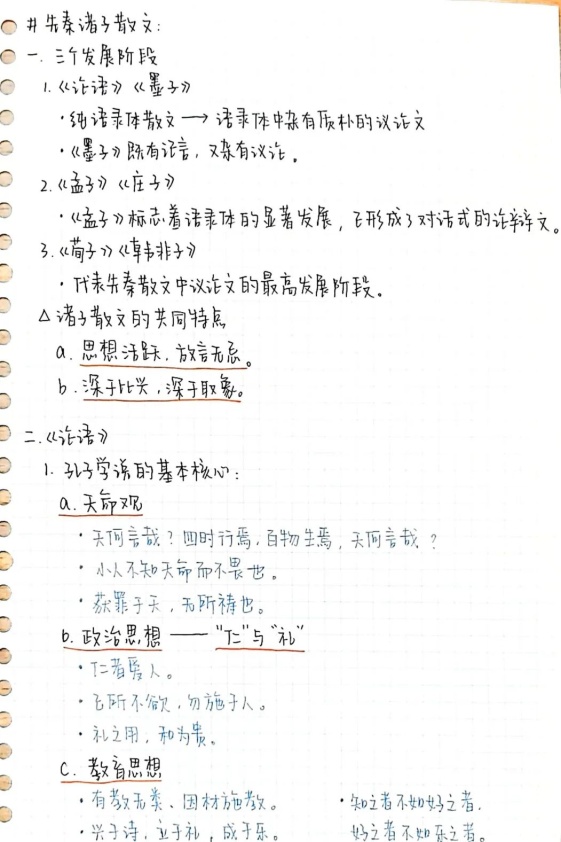 # 先秦诸子散文：
一. 三个发展阶段
1.《论语》《墨子》
·纯语录体散文 → 语录体中杂有质朴的议论文
·《墨子》既有记言，又杂有议论。
2.《孟子》《庄子》
·《孟子》标志着语录体的显著发展，已形成了对话式的论辩文。
3.《荀子》《韩非子》
·代表先秦散文中议论文的最高发展阶段。
△ 诸子散文的共同特点
a. 思想活跃，放言无忌。
b. 深于比兴，深于取象。
二.《论语》
1. 孔子学说的基本核心：
a. 天命观
·天何言哉？四时行焉，百物生焉，天何言哉？
·小人不知天命而不畏也。
·获罪于天，无所祷也。
b. 政治思想 —— “仁”与“礼”
·仁者爱人。
·己所不欲，勿施于人。
·礼之用，和为贵。
c. 教育思想
·有教无类、因材施教。
·兴于诗，立于礼，成于乐。
·知之者不如好之者，
好之者不如乐之者。